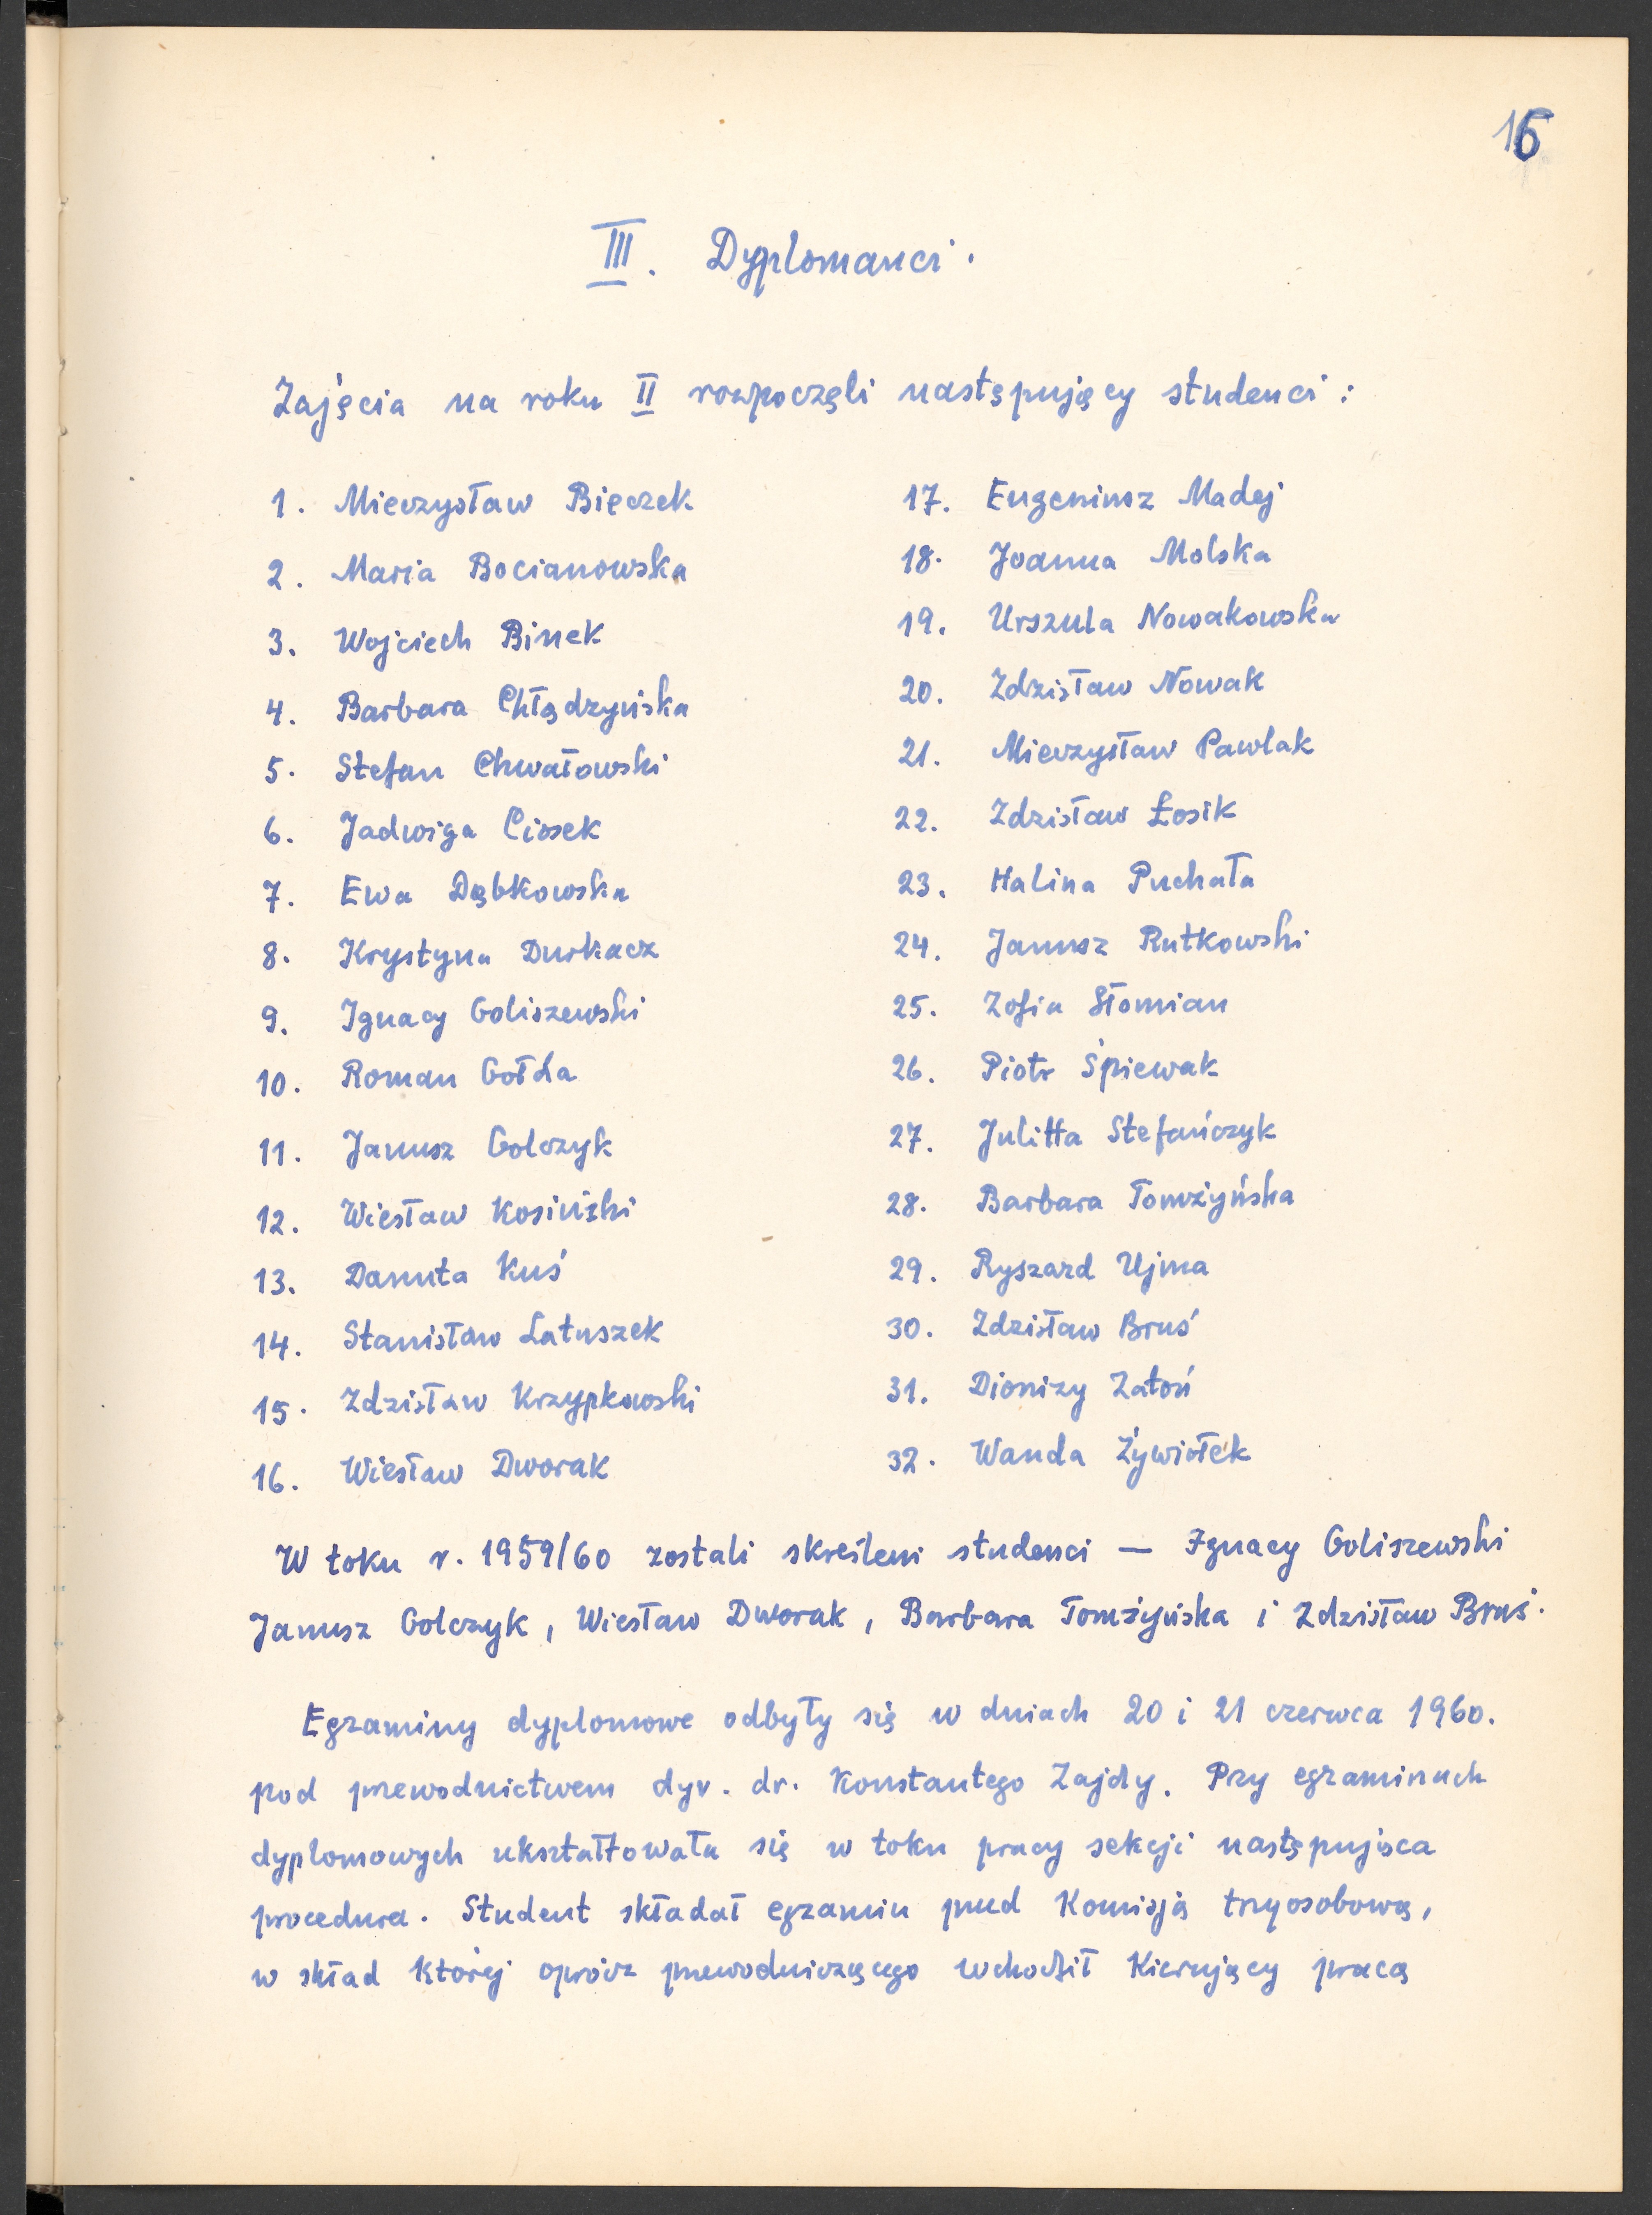 16
III. Dyplomanci.
Zajęcia na roku II rozpoczęli następujący studenci:
1. Mieczysław Bięczek
2. Maria Bocianowska
3. Wojciech Binek
4. Barbara Chłądzyńska
5. Stefan Chwałowski
6. Jadwiga Ciosek
7. Ewa Dąbkowska
8. Krystyna Durkacz
9. Ignacy Goliszewski
10. Roman Gołda
11. Janusz Golczyk
12. Wiesław Kosiński
13. Danuta Kuś
14. Stanisław Latuszek
15. Zdzisław Krzypkowski
16. Wiesław Dworak
17. Eugeniusz Madej
18. Joanna Molska
19. Urszula Nowakowska
20. Zdzisław Nowak
21. Mieczysław Pawlak
22. Zdzisław Łosik
23. Halina Puchała
24. Janusz Rutkowski
25. Zofia Słomian
26. Piotr Śpiewak
27. Julitta Stefańczyk
28. Barbara Tomżyńska
29. Ryszard Ujma
30. Zdzisław Bruś
31. Dionizy Zatoń
32. Wanda Żywiołek
W toku r. 1959/60 zostali skreśleni studenci — Ignacy Goliszewski
Janusz Golczyk, Wiesław Dworak, Barbara Tomżyńska i Zdzisław Bruś.
Egzaminy dyplomowe odbyły się w dniach 20 i 21 czerwca 1960.
pod przewodnictwem dyr. dr. Konstantego Zajdy. Przy egzaminach
dyplomowych ukształtowała się w toku pracy sekcji następująca
procedura. Student składał egzamin przed Komisją trzyosobową,
w skład której oprócz przewodniczącego wchodził Kierujący pracą